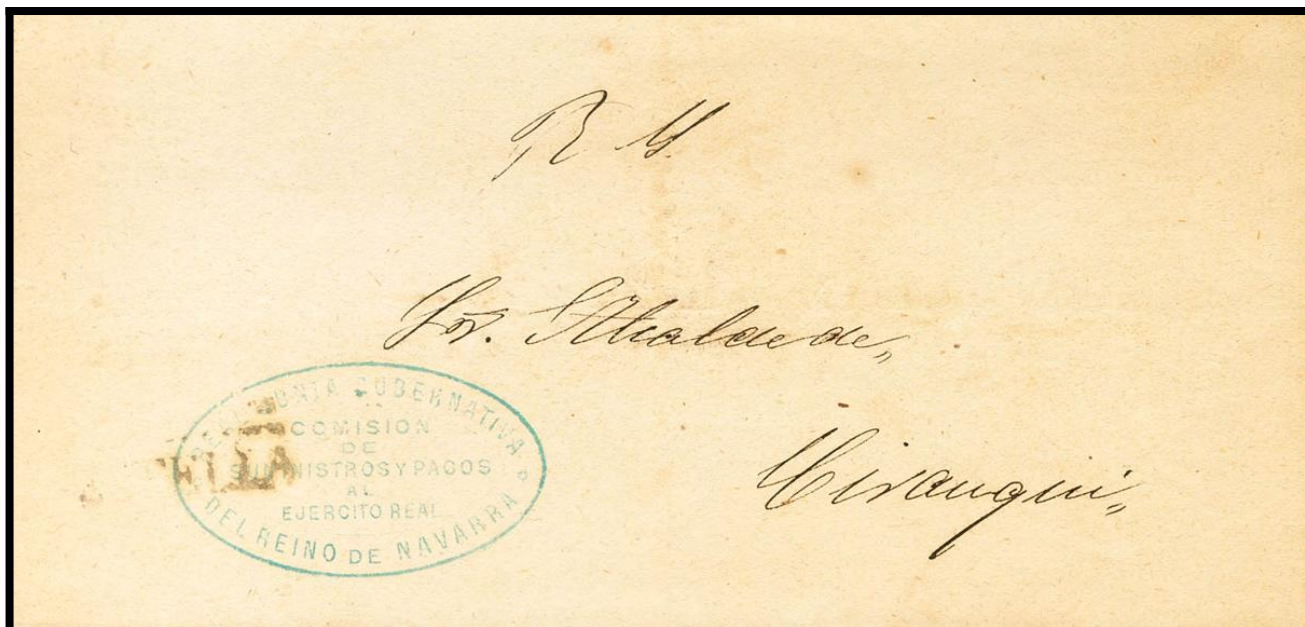 R Y.
Sor. Alcalde de,,
Cirauqui,,
REAL JUNTA GUBERNATIVA
COMISION
DE
SUMINISTROS Y PAGOS
AL
EJERCITO REAL
DEL REINO DE NAVARRA